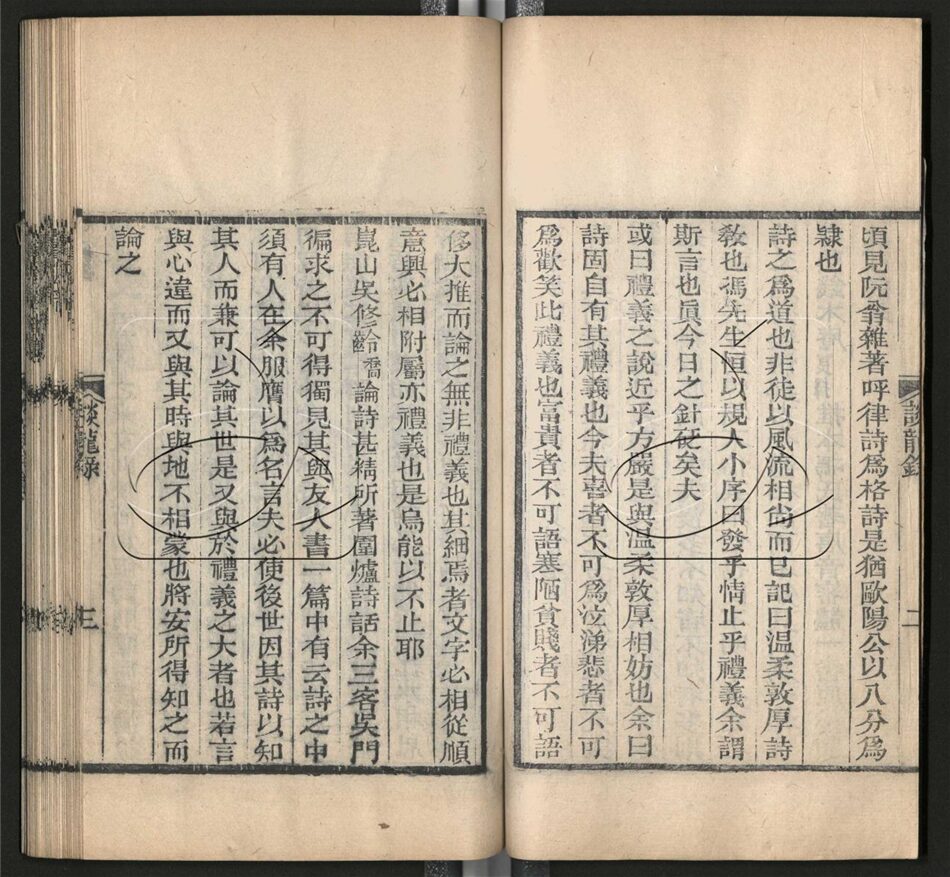 談龍錄
二
頃見阮翁雜著呼律詩爲格詩是猶歐陽公以八分爲
隷也
詩之爲道也非徒以風流相尚而已記曰温柔敦厚詩
敎也馮先生恒以規人小序曰發乎情止乎禮義余謂
斯言也眞今日之針砭矣夫
或曰禮義之說近乎方嚴是與温柔敦厚相妨也余曰
詩固自有其禮義也今夫喜者不可爲泣涕悲者不可
爲歡笑此禮義也富貴者不可語寒陋貧賤者不可語
侈大推而論之無非禮義也其細焉者文字必相從順
意興必相附屬亦禮義也是烏能以不止耶
崑山吳修齡喬論詩甚精所著圍爐詩話余三客吳門
徧求之不可得獨見其與友人書一篇中有云詩之中
須有人在余服膺以爲名言夫必使後世因其詩以知
其人而兼可以論其世是又與於禮義之大者也若言
與心違而又與其時與地不相蒙也將安所得知之而
論之
談龍錄
三